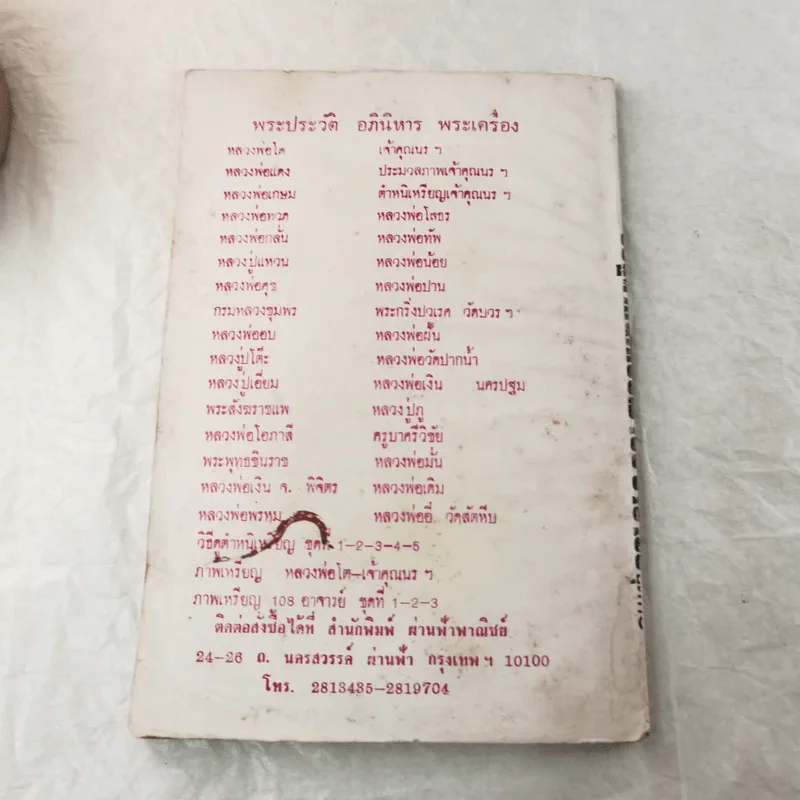 พระประวัติ อภินิหาร พระเครื่อง
หลวงพ่อโต เจ้าคุณนร ฯ
หลวงพ่อแดง ประมวลภาพเจ้าคุณนร ฯ
หลวงพ่อเกษม ตำหนิเหรียญเจ้าคุณนร ฯ
หลวงพ่อทวด หลวงพ่อโสธร
หลวงพ่อกลั่น หลวงพ่อทัพ
หลวงปู่แหวน หลวงพ่อน้อย
หลวงพ่อศุข หลวงพ่อปาน
กรมหลวงชุมพร พระกริ่งปวเรศ วัดบวร ฯ
หลวงพ่ออบ หลวงพ่อฝั้น
หลวงปู่โต๊ะ หลวงพ่อวัดปากน้ำ
หลวงปู่เอี่ยม หลวงพ่อเงิน นครปฐม
พระสังฆราชแพ หลวงปู่ภู
หลวงพ่อโอภาสี ครูบาศรีวิชัย
พระพุทธชินราช หลวงพ่อมั่น
หลวงพ่อเงิน จ. พิจิตร หลวงพ่อเดิม
หลวงพ่อพรหม หลวงพ่ออี๋ วัดสัตหีบ
วิธีดูตำหนิเหรียญ ชุดที่ 1-2-3-4-5
ภาพเหรียญ หลวงพ่อโต-เจ้าคุณนร ฯ
ภาพเหรียญ 108 อาจารย์ ชุดที่ 1-2-3
ติดต่อสั่งซื้อได้ที่ สำนักพิมพ์ ผ่านฟ้าพาณิชย์
24-26 ถ. นครสวรรค์ ผ่านฟ้า กรุงเทพ ฯ 10100
โทร. 2813435-2819704